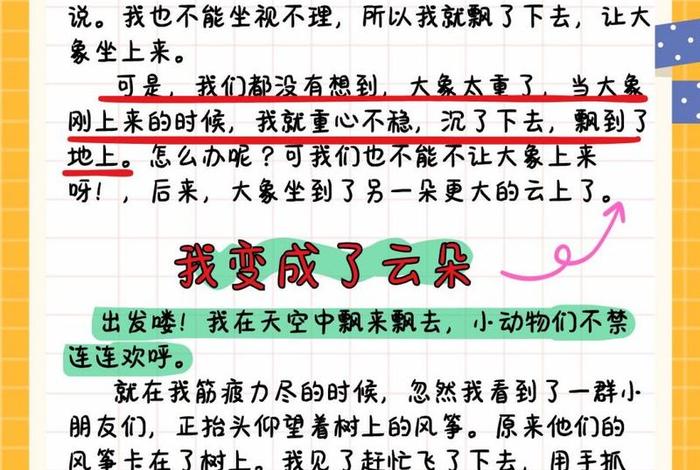 说。我也不能坐视不理，所以我就飘了下去，让大
象坐上来。
可是，我们都没有想到，大象太重了，当大象
刚上来的时候，我就重心不稳，沉了下去，飘到了
地上。怎么办呢？可我们也不能不让大象上来
呀！，后来，大象坐到了另一朵更大的云上了。
我变成了云朵
出发喽！我在天空中飘来飘去，小动物们不禁
连连欢呼。
就在我筋疲力尽的时候，忽然我看到了一群小
朋友们，正抬头仰望着树上的风筝。原来他们的
风筝卡在了树上。我见了赶忙飞了下去，用手抓